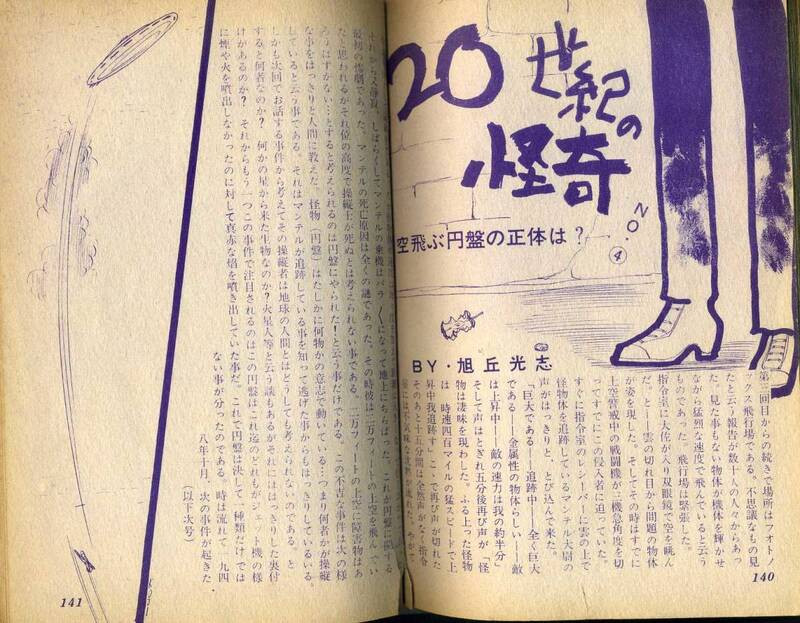 20世紀の
怪奇
NO.
4
空飛ぶ円盤の正体は?
BY・旭丘光志
回目からの続きで場所はフォトノ
ックス飛行場である。不思議なもの見
たと云う報告が数十人の人々からあっ
た。見た事もない物体が機体を輝かせ
ながら猛烈な速度で飛んでいると云う
ものであった。飛行場は緊張した。
指令室に大佐が入り双眼鏡で空を眺ん
だ。と──雲の切れ目から問題の物体
が姿を現した。そしてその時はすでに
上空警戒中の戦闘機が三機急角度を切
ってすでにこの侵入者に迫っていた。
すぐに指令室のレシーバーに雲の上で
怪物体を追跡しているマンテル大尉の
声がはっきりと、とび込んで来た。
「巨大である──追跡中──全く巨大
である──金属性の物体らしい──敵
は上昇中──敵の速力は我の約半分」
そして声はとぎれ五分後再び声が「怪
物は凄味を現わした。ふる上った怪物
は、時速四百マイルの猛スピードで上
昇中我追跡す」ここで再び声が切れた
そのあと十五分間は全然声がなく指令
室には不気味な沈黙が流れた。やがて
140
それから又静寂。しばらくしてマンテルの乗機はバラ〱になって地上にちらばった。これが円盤に関する
最初の惨劇であった。マンテルの死亡原因は全くの謎であった。その時彼は二万フィートの上空を飛んでい
たと思われるがそれ位の高度で操縦士が死ぬとは考えられない事である。二万フィートの上空に障害物はあ
ろうはずがない…とすると考えられるのは円盤にやられた!と云う事だけである。この不吉な事件は次の様
な事をはっきりと人間に教えた。怪物(円盤)はたしかに何物かの意志で動いている…つまり何者かが操縦
していると云う事である。それはマンテルが追跡している事を知って逃げた事からもはっきりしているいる。
しかも次回でお話する事件から考えてその操縦者は地球の人間とはどうしても考えられないのである。と
すると何者なのか? 何かの星から来た生物なのか?火星人等と云う談もあるがそれにははっきりした裏付
けがあるのか? それからもう一つこの事件で注目されるのはこの円盤はこれ迄のどれもがジェット機の様
に煙や火を噴出しなかったのに対して真赤な焰を噴き出していた事だ。これで円盤は決して一種類だけでは
ない事が分ったのである。時は流れて一九四
八年十月、次の事件が起きた
(以下次号)
141